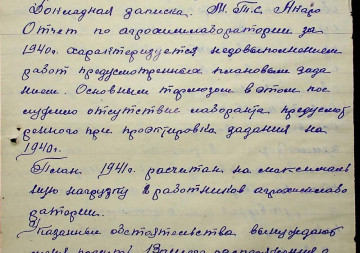 Докладная записка. М.Т.С. Андо
Отчет по агрохимлаборатории за
1940г. характеризуется недовыполнением
работ предусмотренных плановым зада
нием. Основным тормозом в этом пос
лужило отсутствие лаборанта предусмот
ренного при проэктировка задания на
1940г.
План 1941г. расчитан на максималь
ную нагрузку работников агрохимлабо
ратории.
Указанные обстоятельства вынуждают
меня просить Вашего распоряжения о